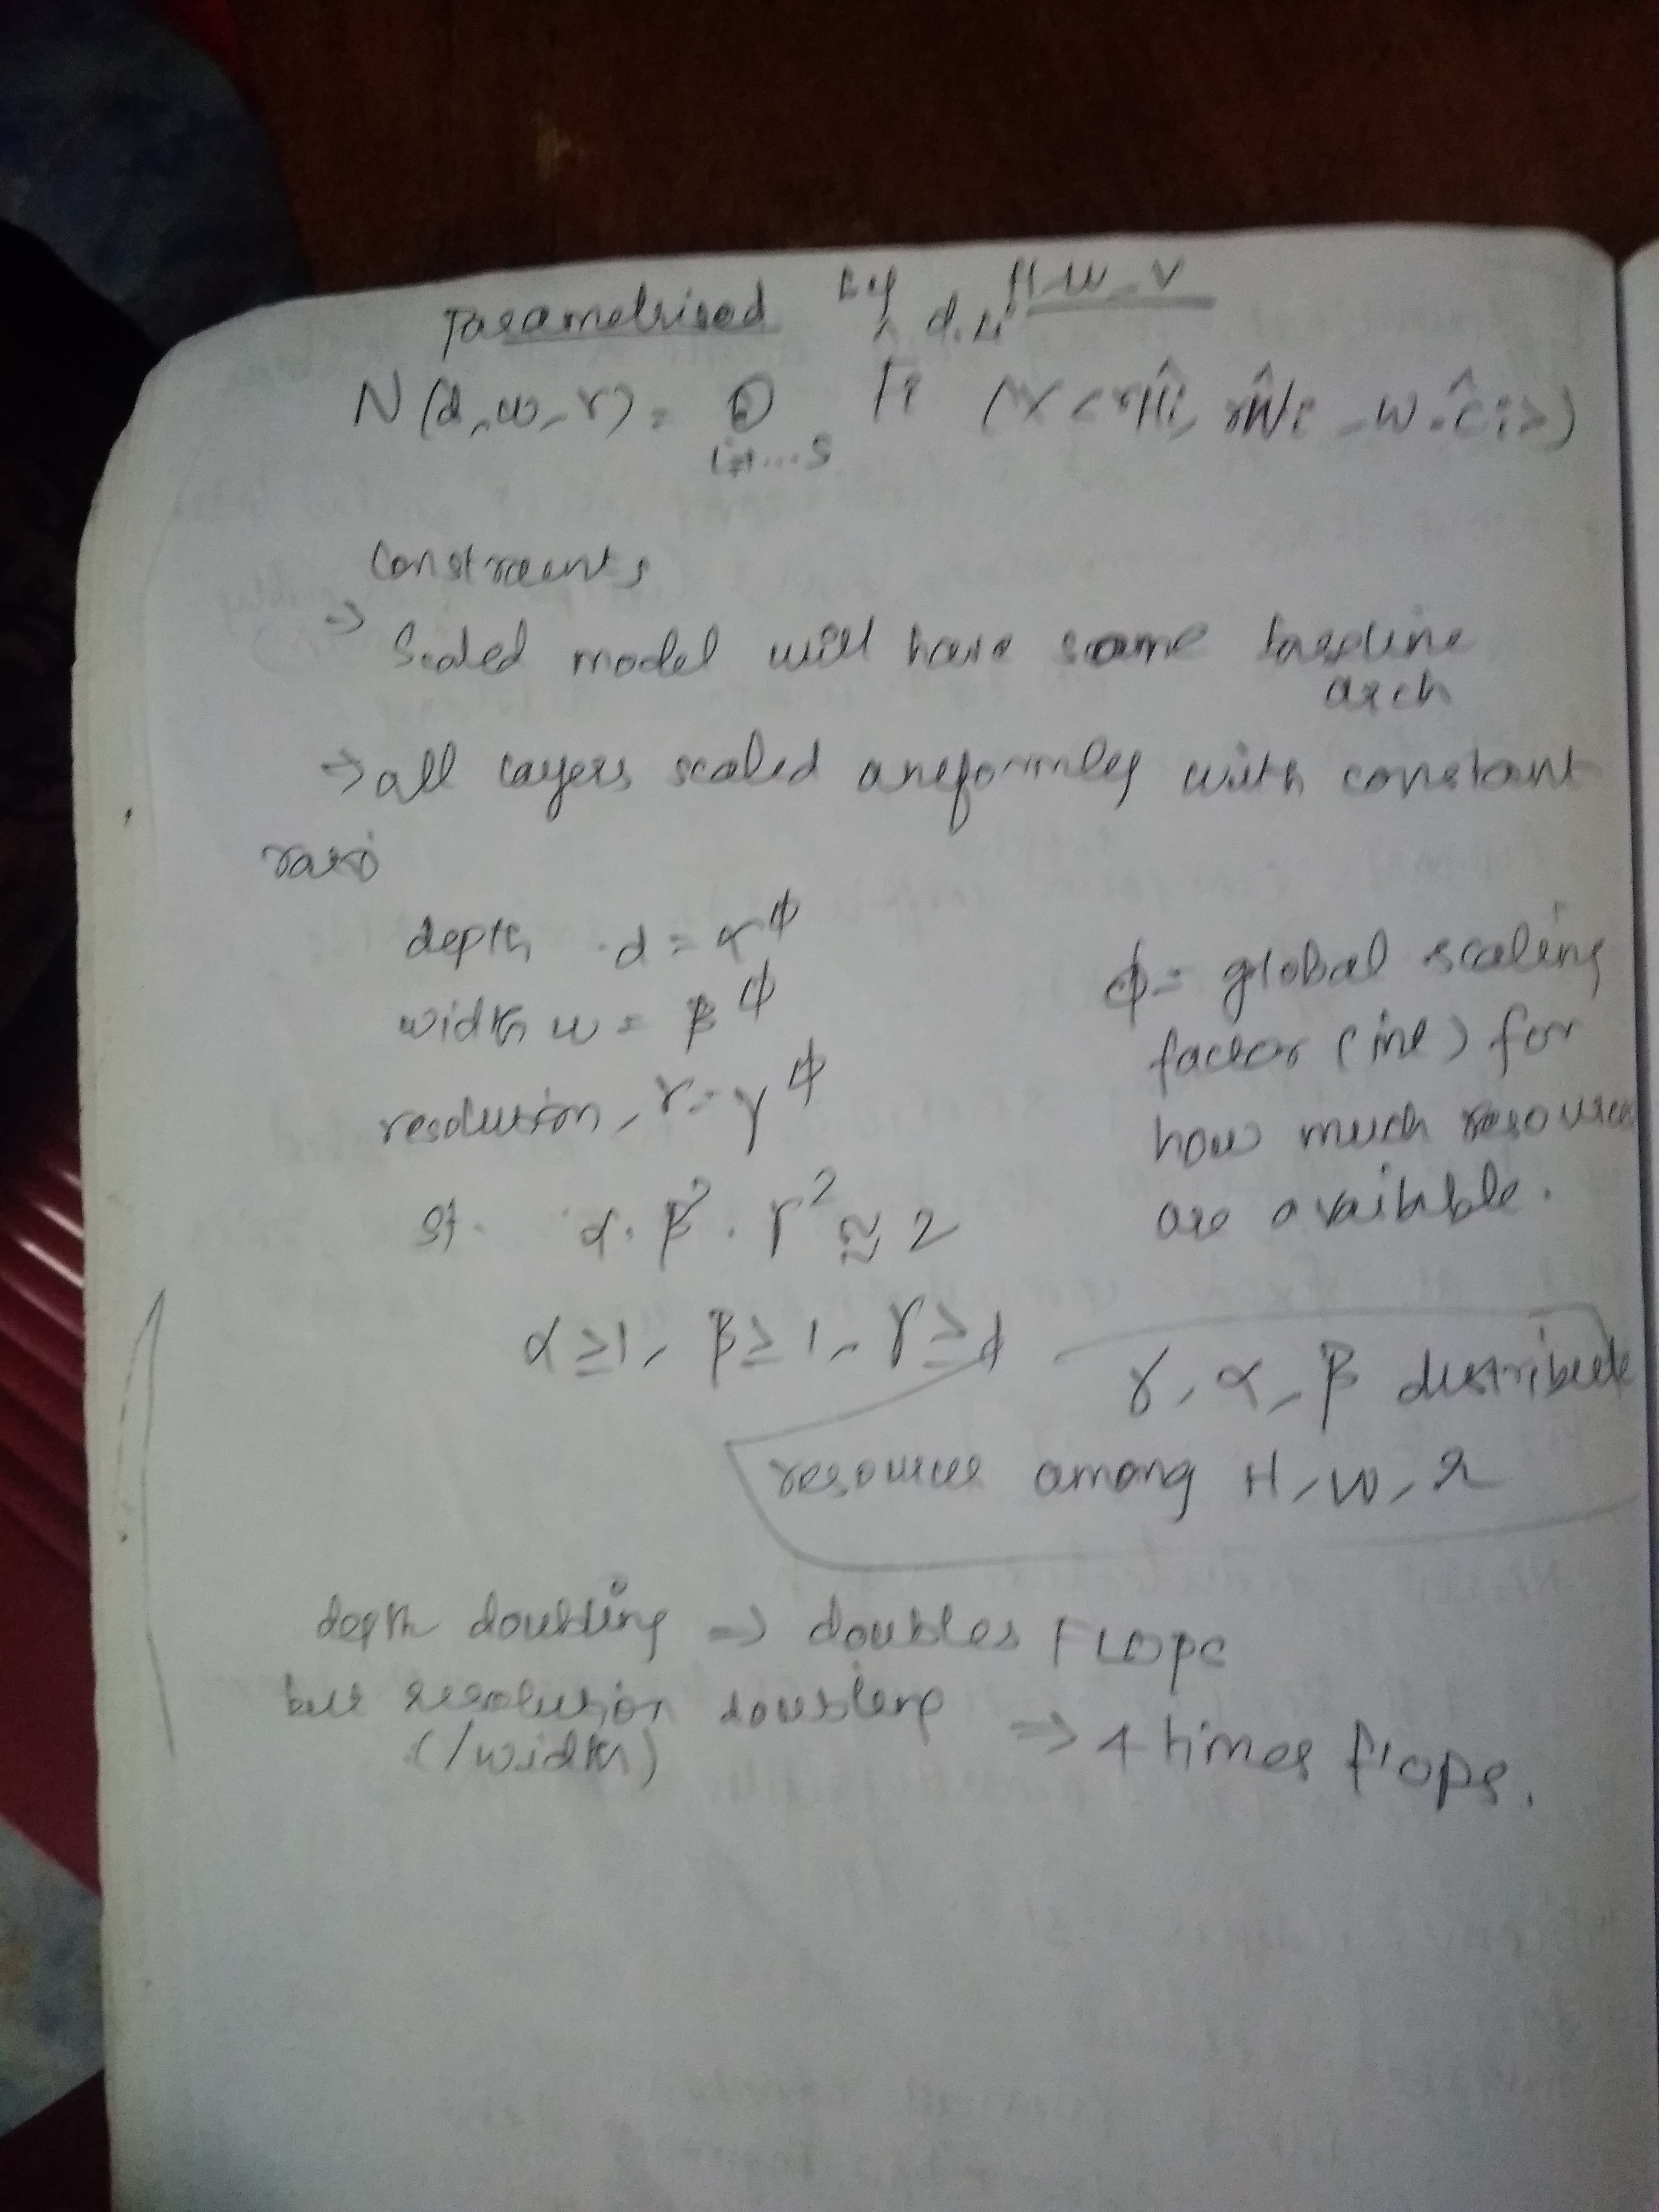 Parametrised by H, W, r
N(d, w, r) = ⊙ Fi (X < rĤi, rŴi, w.Ĉi >)
i=1...S
Constraints
⇒ Scaled model will have same baseline
arch
⇒ all layers scaled uniformly with constant
ratio
depth d = α^ϕ
width w = β^ϕ
resolution, r = γ^ϕ
ϕ = global scaling
factor (int) for
how much resources
are available.
st. α. β². γ² ≈ 2
α ≥ 1, β ≥ 1, γ ≥ 1
γ, α, β distribute
resources among H, W, r
depth doubling ⇒ doubles FLOPS
but resolution doubling ⇒ 4 times flops.
(/width)